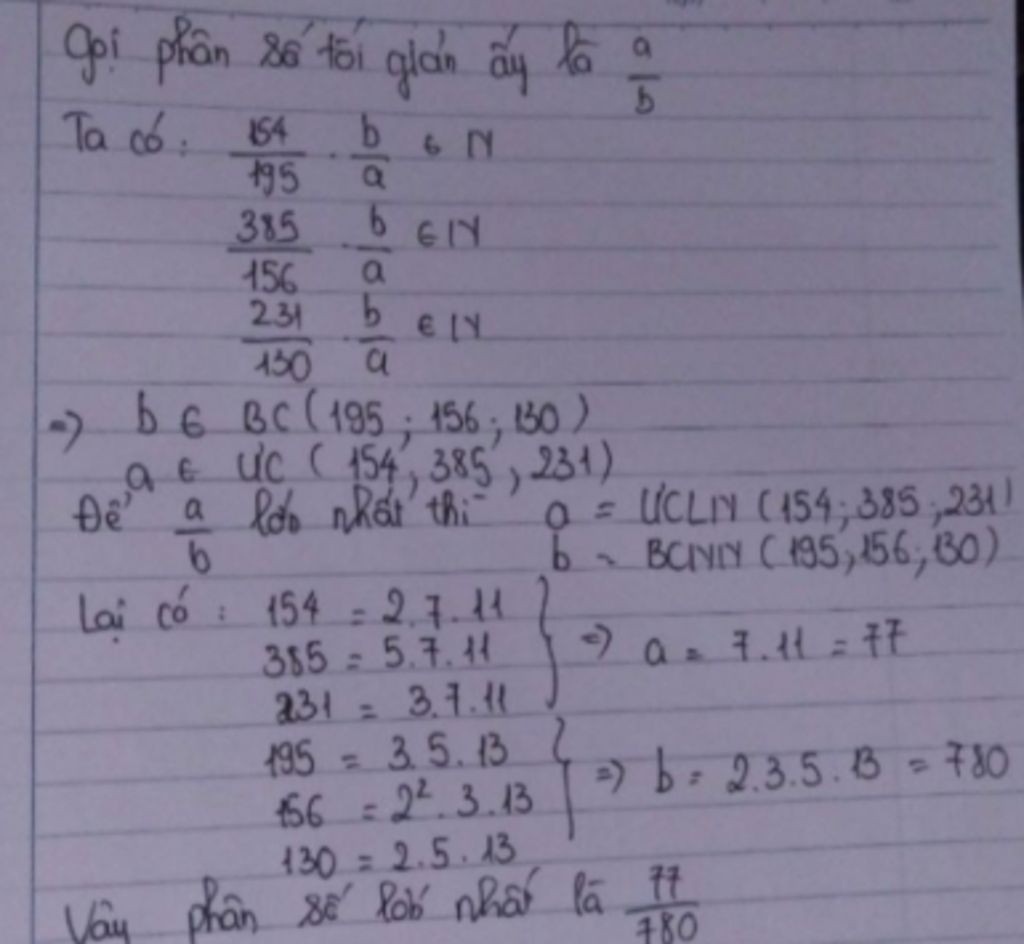 Gọi phân số tối giản ấy là a/b
Ta có: 154/195 . b/a ∈ N
385/156 . b/a ∈ N
231/130 . b/a ∈ N
=> b ∈ BC (195 ; 156 ; 130)
a ∈ ƯC (154, 385, 231)
Để a/b lớn nhất thì a = ƯCLN (154; 385; 231)
b = BCNN (195; 156; 130)
Lại có: 154 = 2.7.11
385 = 5.7.11 } => a = 7.11 = 77
231 = 3.7.11
195 = 3.5.13
156 = 2². 3.13 } => b = 2.3.5.13 = 780
130 = 2.5.13
Vậy phân số lớn nhất là 77/780